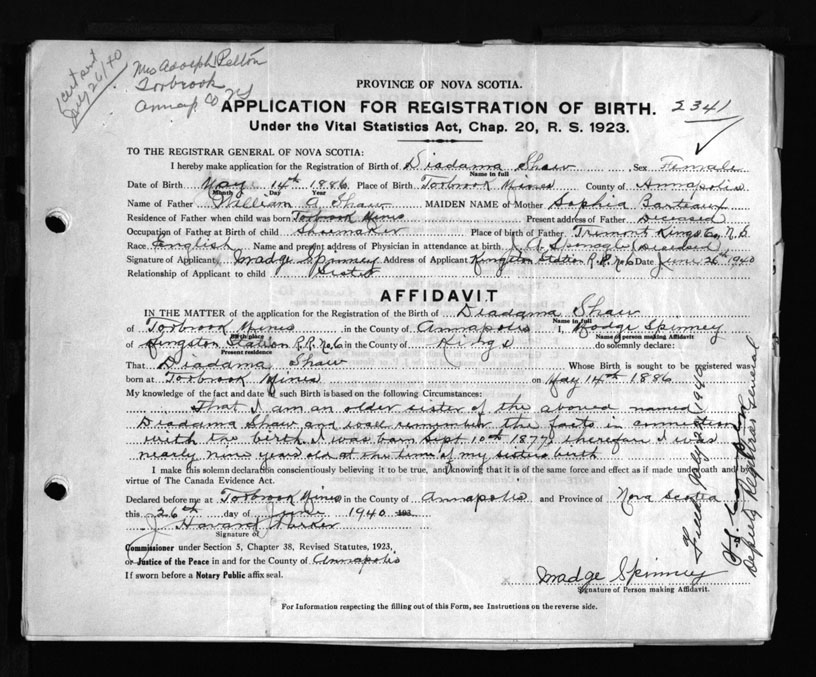 Mrs Adolph Pelton
Torbrook
Annap Co NS
PROVINCE OF NOVA SCOTIA.
APPLICATION FOR REGISTRATION OF BIRTH. 2341
Under the Vital Statistics Act, Chap. 20, R. S. 1923.
TO THE REGISTRAR GENERAL OF NOVA SCOTIA:
I hereby make application for the Registration of Birth of Diadama Shaw Sex Female
Name in full
Date of Birth May 14th 1886 Place of Birth Torbrook Mines County of Annapolis
Month Day Year
Name of Father William A Shaw MAIDEN NAME of Mother Sophia Barteaux
Residence of Father when child was born Torbrook Mines Present address of Father Deceased
Occupation of Father at Birth of child Shoemaker Place of birth of Father Tremont Kings Co,
Race English Name and present address of Physician in attendance at birth (Deceased)
Signature of Applicant Madge Spinney Address of Applicant Kingston Station R.R. No 6 Date June 26th 1940
Relationship of Applicant to child Sister
AFFIDAVIT
IN THE MATTER of the application for the Registration of the Birth of Diadama Shaw
Name in full
of Torbrook Mines in the County of Annapolis I, Madge Spinney
Birth place Name of person making Affidavit
of Kingston Station R.R. No. 6 in the County of Kings do solemnly declare:
Present residence
That Diadama Shaw Whose Birth is sought to be registered was
born at Torbrook Mines on May 14th 1886
My knowledge of the fact and date of such Birth is based on the following Circumstances:
That I am an older sister of the above named
Diadama Shaw and well remember the facts in connection
with the birth. I was born Sept 10th 1877, therefore I was
nearly nine years old at the time of my sisters birth
I make this solemn declaration conscientiously believing it to be true, and knowing that it is of the same force and effect as if made under oath and by
virtue of The Canada Evidence Act.
Declared before me at Torbrook Mines in the County of Annapolis and Province of Nova Scotia
this 26th day of June 1940 193
J Parker
Signature of
Commissioner under Section 5, Chapter 38, Revised Statutes, 1923,
or Justice of the Peace in and for the County of Annapolis
If sworn before a Notary Public affix seal.
Madge Spinney
Signature of Person making Affidavit.
For Information respecting the filling out of this Form, see Instructions on the reverse side.
Filed 1940
Deputy Registrar General